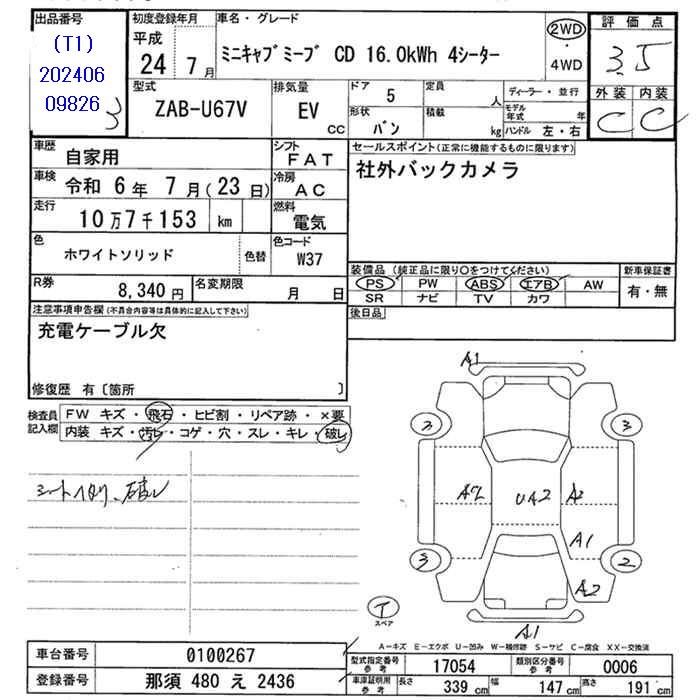 出品番号
(T1)
202406
09826
3
初度登録年月
平成
24 年 7 月
車名・グレード
ミニキャブ ミーブ CD 16.0kWh 4シーター
2WD
・
4WD
評価点
3.5
外装 内装
C C
型式
ZAB-U67V
排気量
EV
CC
ドア 5
定員 人
形状 バン
積載 kg
ディーラー・並行
モデル年式 年
ハンドル 左・右
車歴 自家用
シフト FAT
車検 令和 6 年 7 月 ( 23 日)
冷房 AC
走行 10 万 7 千 153 km
燃料 電気
色 ホワイトソリッド 色替
色コード W37
R券 8,340 円
名変期限 月 日
セールスポイント(正常に機能するものに限ります)
社外バックカメラ
装備品 (純正品に限り○をつけてください)
PS PW ABS エアB AW
SR ナビ TV カワ
新車保証書
有・無
後日品
注意事項申告欄 (不具合内容等は具体的に記入して下さい)
充電ケーブル欠
修復歴 有〔箇所 〕
検査員記入欄
FW キズ・飛石・ヒビ割・リペア跡・×要
内装 キズ・汚れ・コゲ・穴・スレ・キレ・破れ
シートヘタリ、破レ
A1
2 3
A2 UA2 A2
A1
3 2
A2
A1
T
スペア
A－キズ E－エクボ U－凹み W－補修跡 S－サビ C－腐食 XX－交換済
車台番号 0100267
登録番号 那須 480 え 2436
型式指定番号 参考 17054
類別区分番号 参考 0006
車庫証明用 参考
長さ 339 cm 幅 147 cm 高さ 191 cm